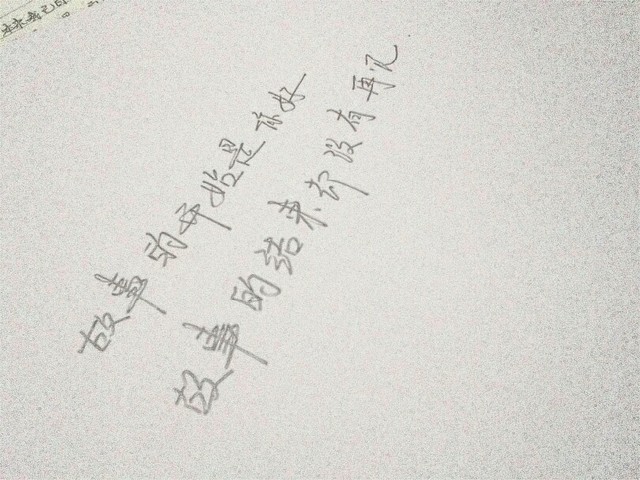 故事的开始是你好
故事的结束却没有再见